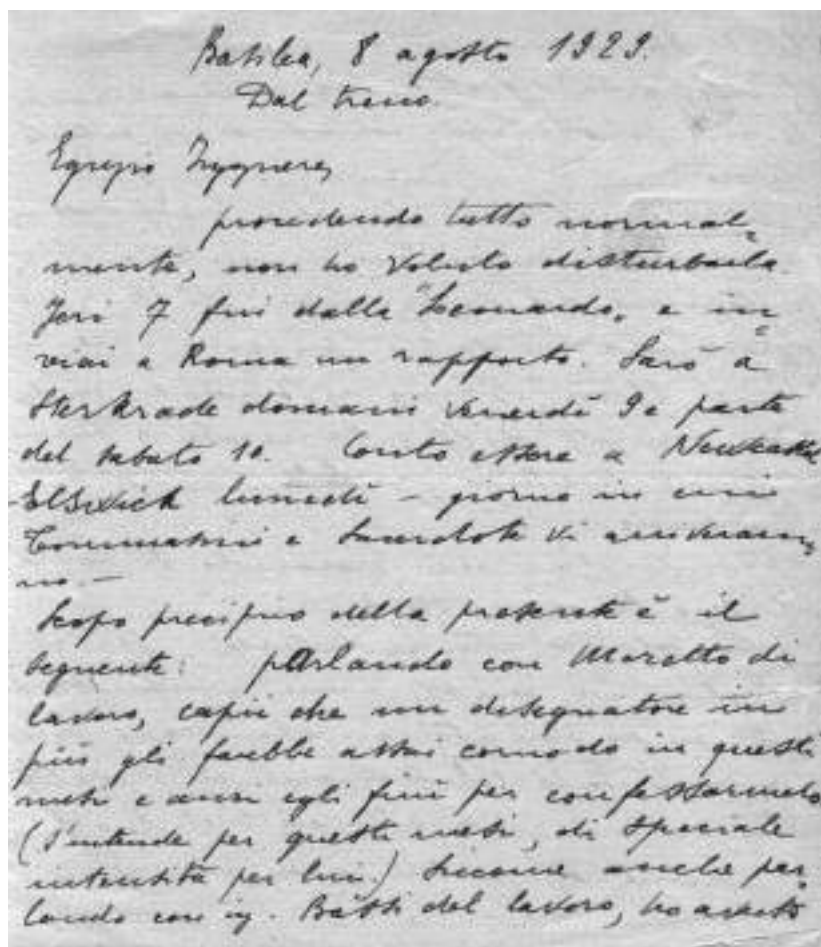 Basilea, 8 agosto 1929.
Dal treno.
Egregio Ingegnere,
procedendo tutto normal=
mente, non ho voluto disturbarla.
Jeri 7 fui dalla "Leonardo" e in=
viai a Roma un rapporto. Sarò a
Sterkrade domani venerdì 9 e parte
del sabato 10. Conto essere a Newcastle
Elswick lunedì - giorno in cui
e Sacerdote vi arriveran=
no. -
Scopo precipuo della presente è il
seguente: parlando con Moretto di
lavoro, capii che un disegnatore in
più gli farebbe assai comodo in questi
mesi e anzi egli finì per confessarmelo
(s'intende per questi mesi, di speciale
intensità per lui.) Siccome anche par=
lando con ing. del lavoro, ho avuto